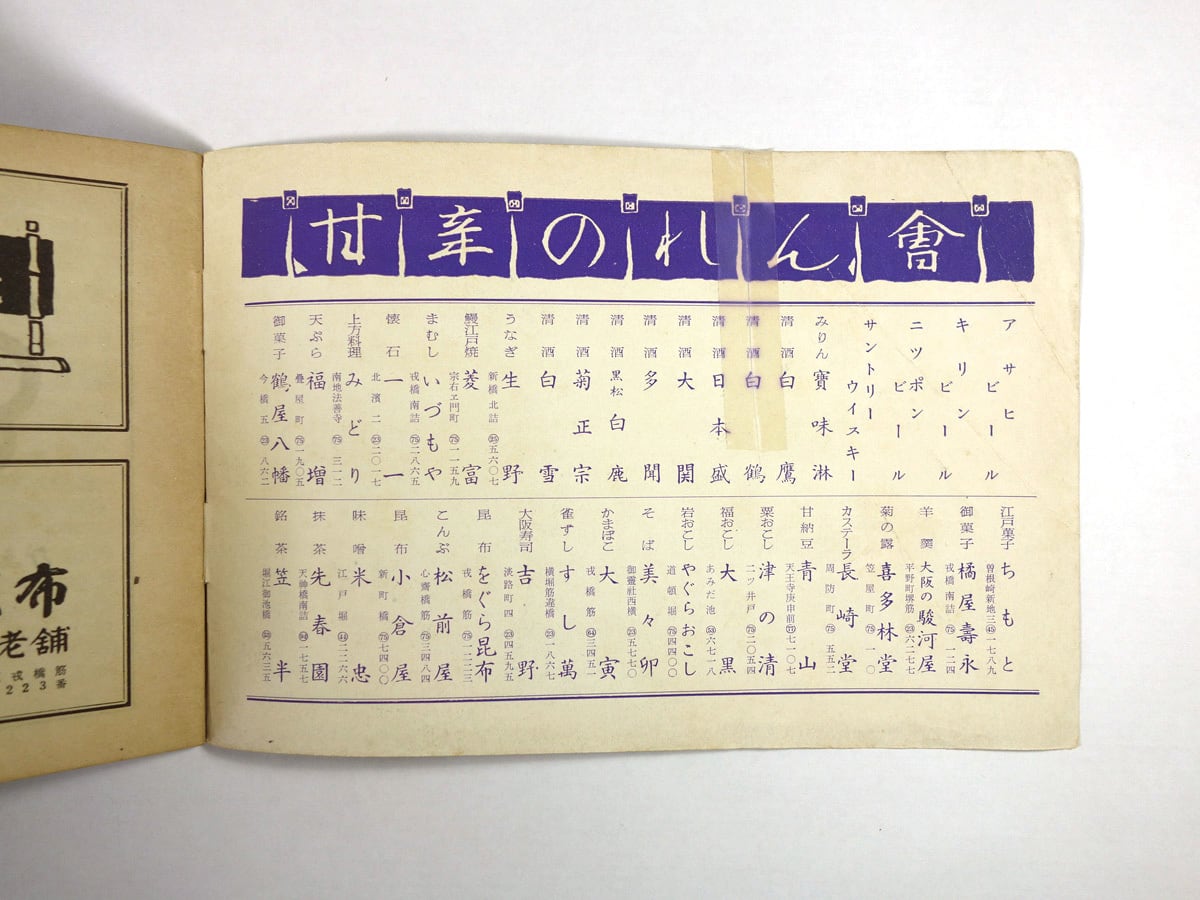 甘辛のれん會
アサヒビール
キリンビール
ニツポンビール
サントリーウイスキー
みりん 寶味淋
清酒 白鷹
清酒 白鶴
清酒 日本盛
清酒 大関
清酒 多聞
清酒 黒松白鹿
清酒 菊正宗
清酒 白雪
うなぎ 生野 新橋北詰
鰻江戸焼 菱富 宗右ヱ門町 ㊆二一五九
まむし いづもや 戎橋南詰 ㊆二八六五
懐石 一一 北濱二 ㉓二〇一七
上方料理 みどり 南地法善寺 ㊆三一二
天ぷら 福増 疊屋町 ㊆一九〇五
御菓子 鶴屋八幡 今橋五 ㉓八六二
江戸菓子 ちもと 曽根崎新地三 ㊺一七八九
御菓子 橘屋壽永 戎橋南詰 ㊆一二四
羊羹 大阪の駿河屋 平野町堺筋 ㉓六二七七
菊の露 喜多林堂 笠屋町 ㊆一一〇
カステーラ 長崎堂 周防町
甘納豆 青山 天王寺庚申前 七一〇七
粟おこし 津の清 二ツ井戸 ㊆二〇五四
福おこし 大黒 あみだ池 六七一八
岩おこし やぐらおこし 道頓堀 ㊆四四〇〇
そば 美々卯 御霊社西横 ㉓五七七〇
かまぼこ 大寅 戎橋筋 三四五一
雀ずし すし萬 横堀筋違橋 ㉓一八六七
大阪寿司 吉野 淡路町四 ㉓四五九五
昆布 をぐら昆布 戎橋筋 ㊆一二二三
こんぶ 松前屋 心齋橋筋 ㊆三四八四
昆布 小倉屋 新町橋 ㊆五四〇〇
味噌 米忠 江戸堀 ㊹二二二六
抹茶 先春園 天神橋南詰 一七五七
銘茶 笠半 堀江御池橋 五六三五
布
老舗
戎橋筋
223番